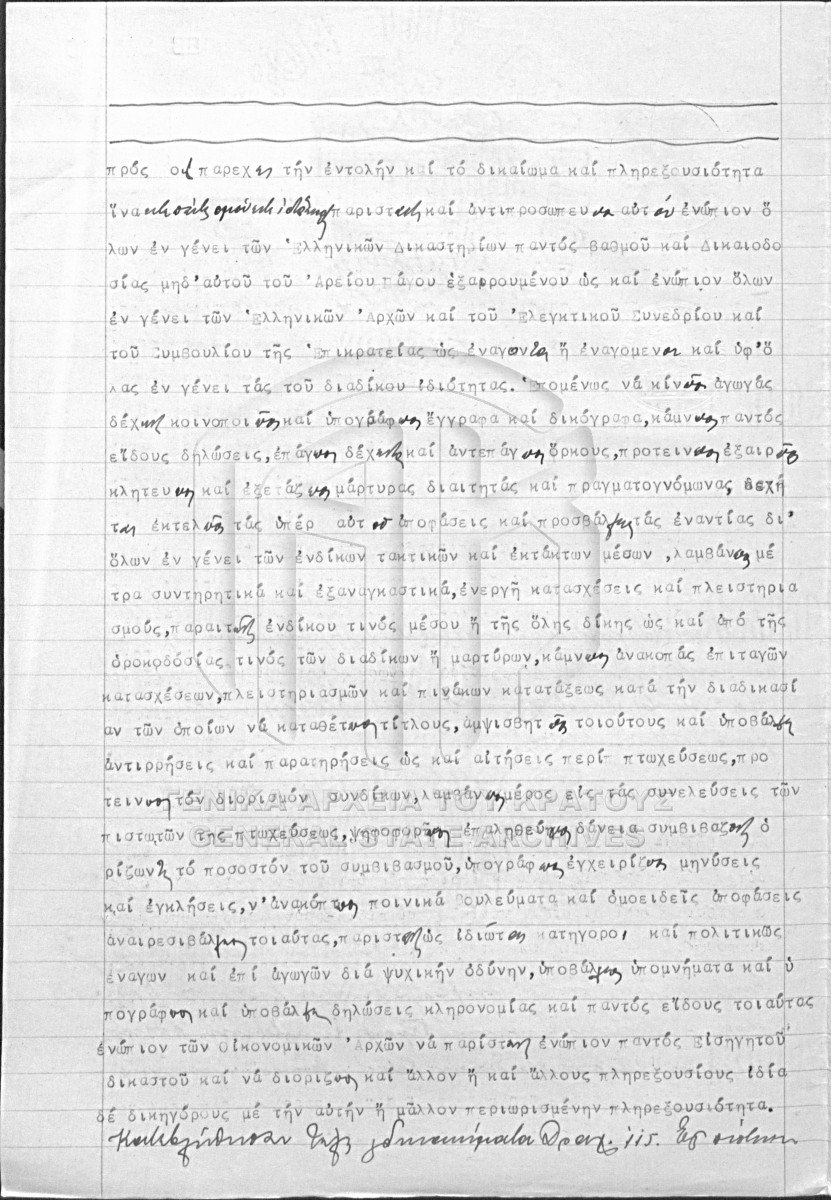 πρός οὓς παρεχει τήν ἐντολήν καί τό δικαίωμα καί πληρεξουσιότητα
ἵνα παρισταται καί ἀντιπροσωπευωσι αὐτόν ἐνώπιον ὅ
λων ἐν γένει τῶν Ἑλληνικῶν Δικαστηρίων παντός βαθμοῦ καί Δικαιοδο
σίας μηδ'αὐτοῦ τοῦ Ἀρείου Πάγου ἐξαιρουμένου ὡς καί ἐνώπιον ὅλων
ἐν γένει τῶν Ἑλληνικῶν Ἀρχῶν καί τοῦ Ἐλεγκτικοῦ Συνεδρίου καί
τοῦ Συμβουλίου τῆς Ἐπικρατείας ὡς ἐναγοντα ἤ ἐναγομενον καί ὑφ'ὅ
λας ἐν γένει τάς τοῦ διαδίκου ἰδιότητας. Ἑπομένως νά κινῶσι ἀγωγάς
δέχωνται κοινοποιῶσι καί ὑπογράφωσι ἔγγραφα καί δικόγραφα, κάμνωσι παντός
εἴδους δηλώσεις, ἐπάγωσι δέχωνται καί ἀντεπάγωσι ὅρκους, προτεινωσι ἐξαιρῶσι
κλητευωσι καί ἐξετάζωσι μάρτυρας διαιτητάς καί πραγματογνόμωνας, δεχη
ται ἐκτελῶσι τάς ὑπέρ αὐτοῦ ἀποφάσεις καί προσβάλωσι τάς ἐναντίας δι'
ὅλων ἐν γένει τῶν ἐνδίκων τακτικῶν καί ἐκτάκτων μέσων ,λαμβάνωσι μέ
τρα συντηρητικά καί ἐξαναγκαστικά, ἐνεργῆ κατασχέσεις καί πλειστηρια
σμούς, παραιτῆται ἐνδίκου τινός μέσου ἤ τῆς ὅλης δίκης ὡς καί ἀπό τῆς
ὁρκοδοσίας τινός τῶν διαδίκων ἤ μαρτύρων, κάμνωσι ἀνακοπάς ἐπιταγῶν
κατασχέσεων, πλειστηριασμῶν καί πινάκων κατατάξεως κατά τήν διαδικασί
αν τῶν ὁποίων νά καταθέτωσι τίτλους, ἀμφισβητῶσι τοιούτους καί ὑποβάλωσι
ἀντιρρήσεις καί παρατηρήσεις ὡς καί αἰτήσεις περί πτωχεύσεως, προ
τεινωσι τόν διορισμόν συνδίκων, λαμβάνωσι μέρος εἰς τάς συνελεύσεις τῶν
πιστωτῶν της πτωχεύσεως, ψηφοφορῶσι ἐπαληθεύωσι δάνεια συμβιβαζωνται ὁ
ρίζωντα τό ποσοστόν τοῦ συμβιβασμοῦ, ὑπογράφωσι ἐγχειρίζωσι μηνύσεις
καί ἐγκλήσεις, ν'ἀνακόπτωσι ποινικά Βουλεύματα καί ὁμοειδεῖς ἀποφάσεις
ἀναιρεσιβάλωσι τοιαῦτας, παρισταται ὡς ἰδιώται κατηγοροι καί πολιτικῶς
ἐναγων καί ἐπί ἀγωγῶν διά ψυχικήν ὀδύνην, ὑποβάλωσι ὑπομνήματα καί ὑ
πογράφωσι καί ὑποβάλωσι δηλώσεις κληρονομίας καί παντός εἴδους τοιαῦτας
ἐνώπιον τῶν Οἰκονομικῶν Ἀρχῶν νά παρίσταται ἐνώπιον παντός Εἰσηγητοῦ
δικαστοῦ καί νά διοριζωσι καί ἄλλον ἤ καί ἄλλους πληρεξουσίους ἰδία
δέ δικηγόρους μέ τήν αὐτήν ἤ μᾶλλον περιωρισμένην πληρεξουσιότητα.
Κατεβλήθησαν τέλη δικαιώματα Δραχ. 115. Ἐφ'
ΓΕΝΙΚΑ ΑΡΧΕΙΑ ΤΟΥ ΚΡΑΤΟΥΣ
GENERAL STATE ARCHIVES